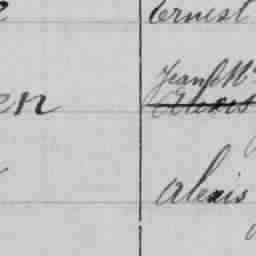 Ernest
Jean
en Alexis
Alexis